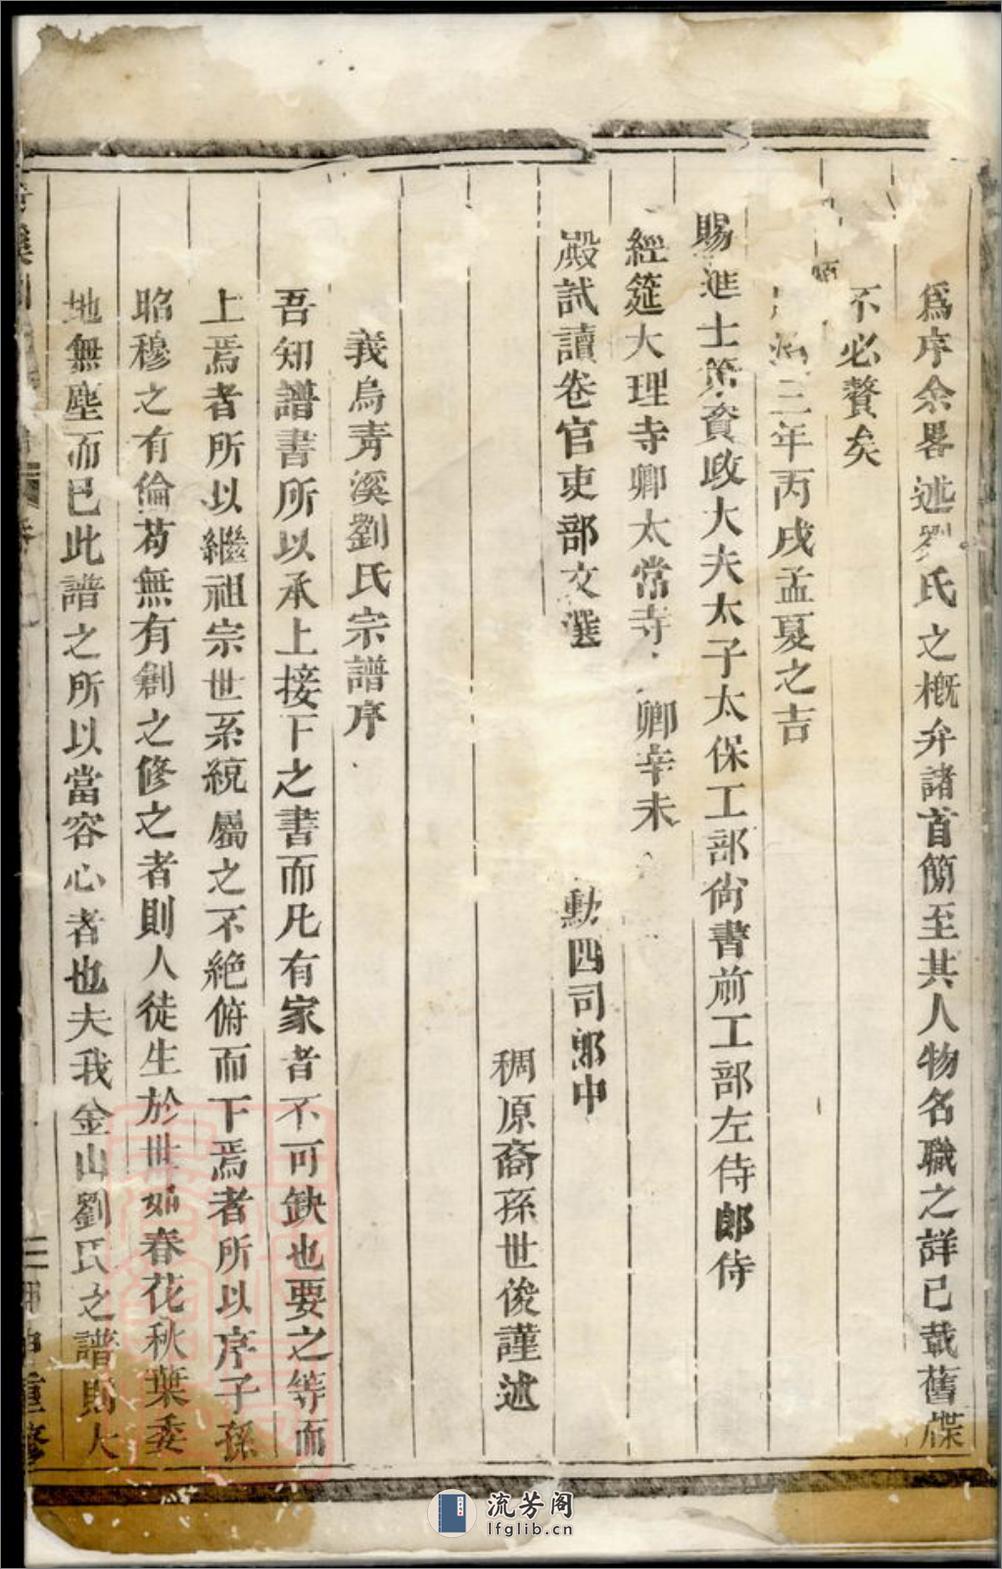 爲序余畧述劉氏之概弁諸首簡至其人物名職之詳已載舊牒
不必贅矣
三年丙戌孟夏之吉
賜進士第資政大夫太子太保工部尙書前工部左侍郎侍
經筵大理寺卿太常寺卿辛未
殿試讀卷官吏部文選
勳四司郎中
稠原裔孫世俊謹述
義烏青溪劉氏宗譜序
吾知譜書所以承上接下之書而凡有家者不可缺也要之等而
上焉者所以繼祖宗世系統屬之不絶俯而下焉者所以序子孫
昭穆之有倫苟無有創之修之者則人徒生於世如春花秋葉委
地無塵而已此譜之所以當容心者也夫我金山劉氏之譜則大
重修
流芳阁
lfglib.cn